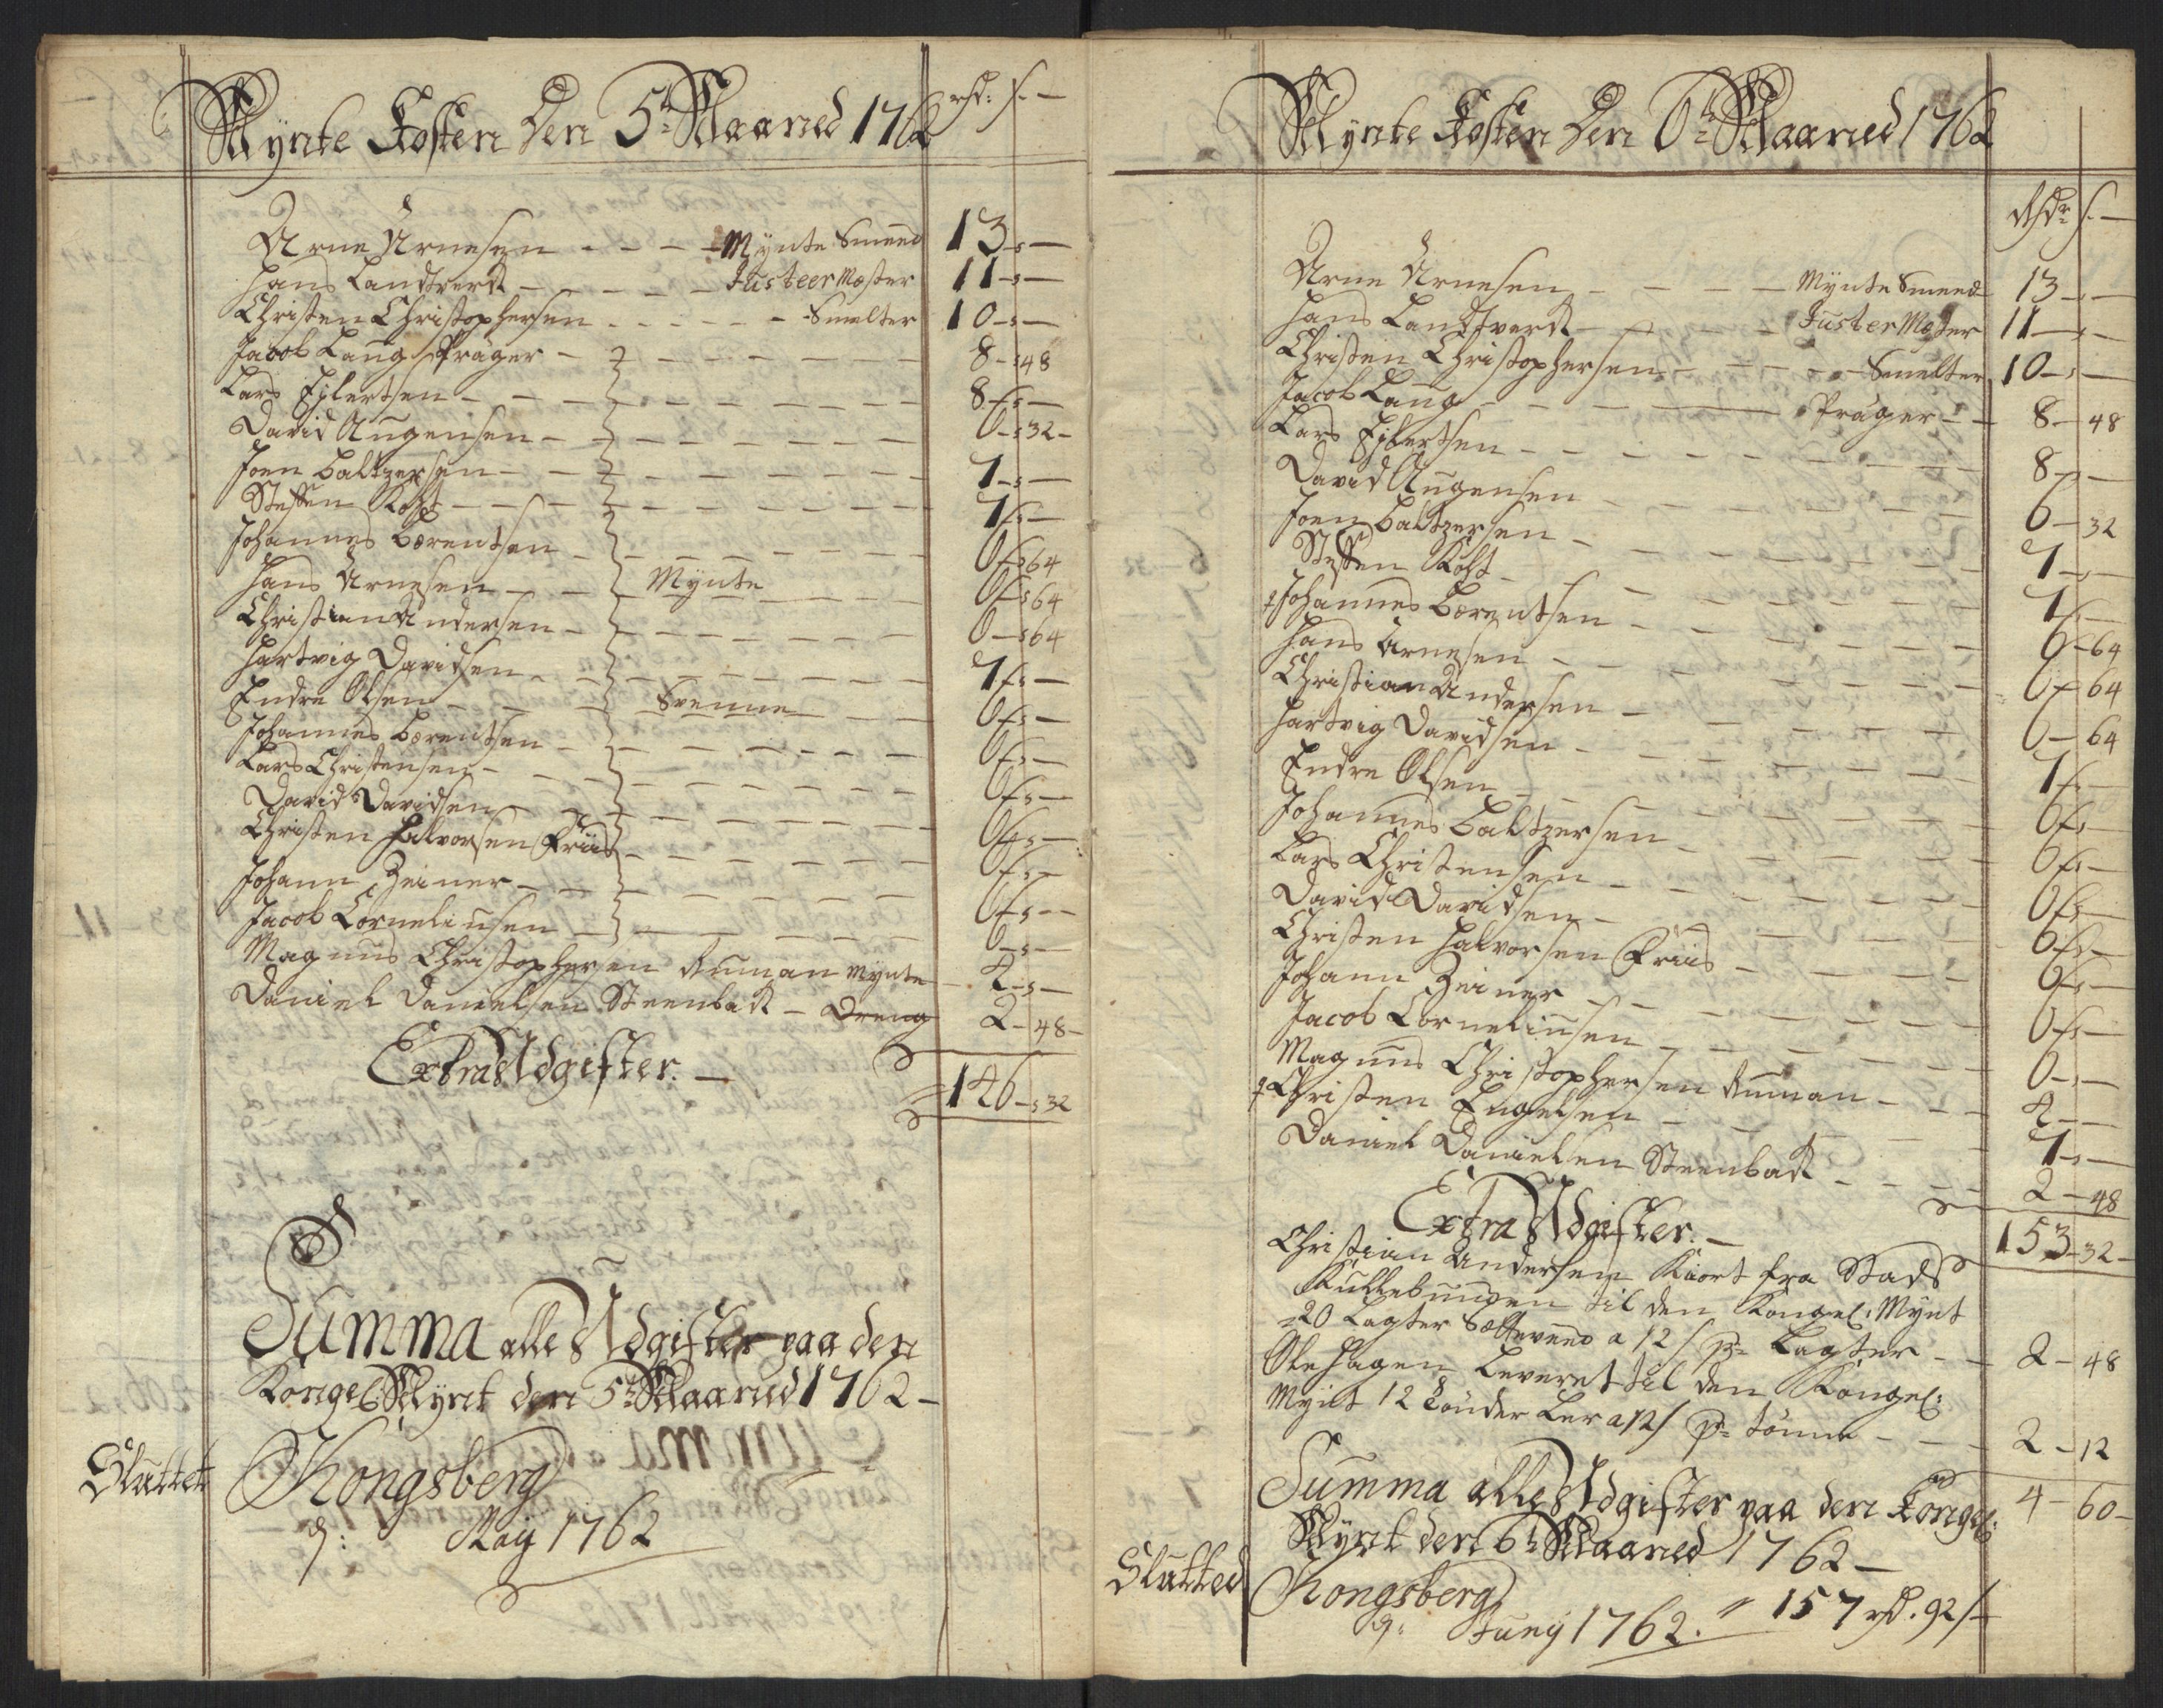 Mynte Kosten Den 5te Maaned 1762 rd: s. —
Arne Arnesen - - - Mynte Smeed 13 - s —
Hans Landtverk - - - - Justeer Mester 11 - s —
Christen Christophersen - - - - Smelter 10 - s —
Jacob Laug Präger - - - - 8 - s 48
Lars Ejlertsen - - - - 8 - s —
David Augensen - - - - 6 - s 32 -
Joen Baltzersen - - - - 7 - s —
Steffen Kolft - - - - 7 - s —
Johannes Bærentsen - - - - 6 - s 64
Hans Arnesen - - - Mynte - - - 6 - s 64
Christian Andersen - - - - 6 - s 64
Hartvig Davidsen - - - - 7 - s —
Endre Olsen - - - Svenne - - - 6 - s —
Johannes Bærentsen - - - - 6 - s —
Lars Christensen - - - - 6 - s —
David Davidsen - - - - 6 - s —
Christen Halvorsen Friis - - - - 6 - s —
Johann Zeiner - - - - 6 - s —
Jacob Corneliusen - - - - 6 - s —
Magnus Christophersen Ruman Mynte - 4 - s —
Daniel Danielsen Steenbak - Dreng 2 - 48 -
Extra Udgifter. — 146 - s 32
Summa alle Udgifter paa den
Kongel: Mynt den 5te Maaned 1762 -
Sluttet Kongsberg
d: May 1762
Mynte Kosten Den 6te Maaned 1762
Rdr s. —
Arne Arnesen - - - - Mynte Smeed 13 - s —
Hans Landtverk - - - - Juster Mester 11 - s —
Christen Christophersen - - - - Smelter 10 - s —
Jacob Laug - - - - Präger - - 8 - 48
Lars Ejlertsen - - - - 8 - s —
David Augensen - - - - 6 - 32
Joen Baltzersen - - - - 7 - s —
Steffen Kolft - - - - 7 - s —
Johannes Bærentsen - - - - 6 - 64
Hans Arnesen - - - - 6 - 64
Christian Andersen - - - - 6 - 64
Hartvig Davidsen - - - - 7 - s —
Endre Olsen - - - - 6 - s —
Johannes Baltzersen - - - - 6 - s —
Lars Christensen - - - - 6 - s —
David Davidsen - - - - 6 - s —
Christen Halvorsen Friis - - - - 6 - s —
Johann Zeiner - - - - 6 - s —
Jacob Corneliusen - - - - 6 - s —
Magnus Christophersen Ruman - - - 4 - —
Christen Engelsen - - - - 7 - s —
Daniel Danielsen Steenbak - - - - 2 - 48
Extra Udgifter. — 153 - 32 -
Christian Andersen Kiört fra Stads
Kullebunden til den Kongel: Mynt
20 Lagter Sætteveed a 12 s pr Lagter - - 2 - 48
Ole Hagen Leveret til den Kongel:
Mynt 12 Tönder Leer a 12 s pr Tönne - - - 2 - 12
Summa alle Udgifter paa den Kongel: 4 - 60 -
Mynt den 6te Maaned 1762 —
Sluttet Kongsberg
d: Juny 1762. " 157 rd. 92 s